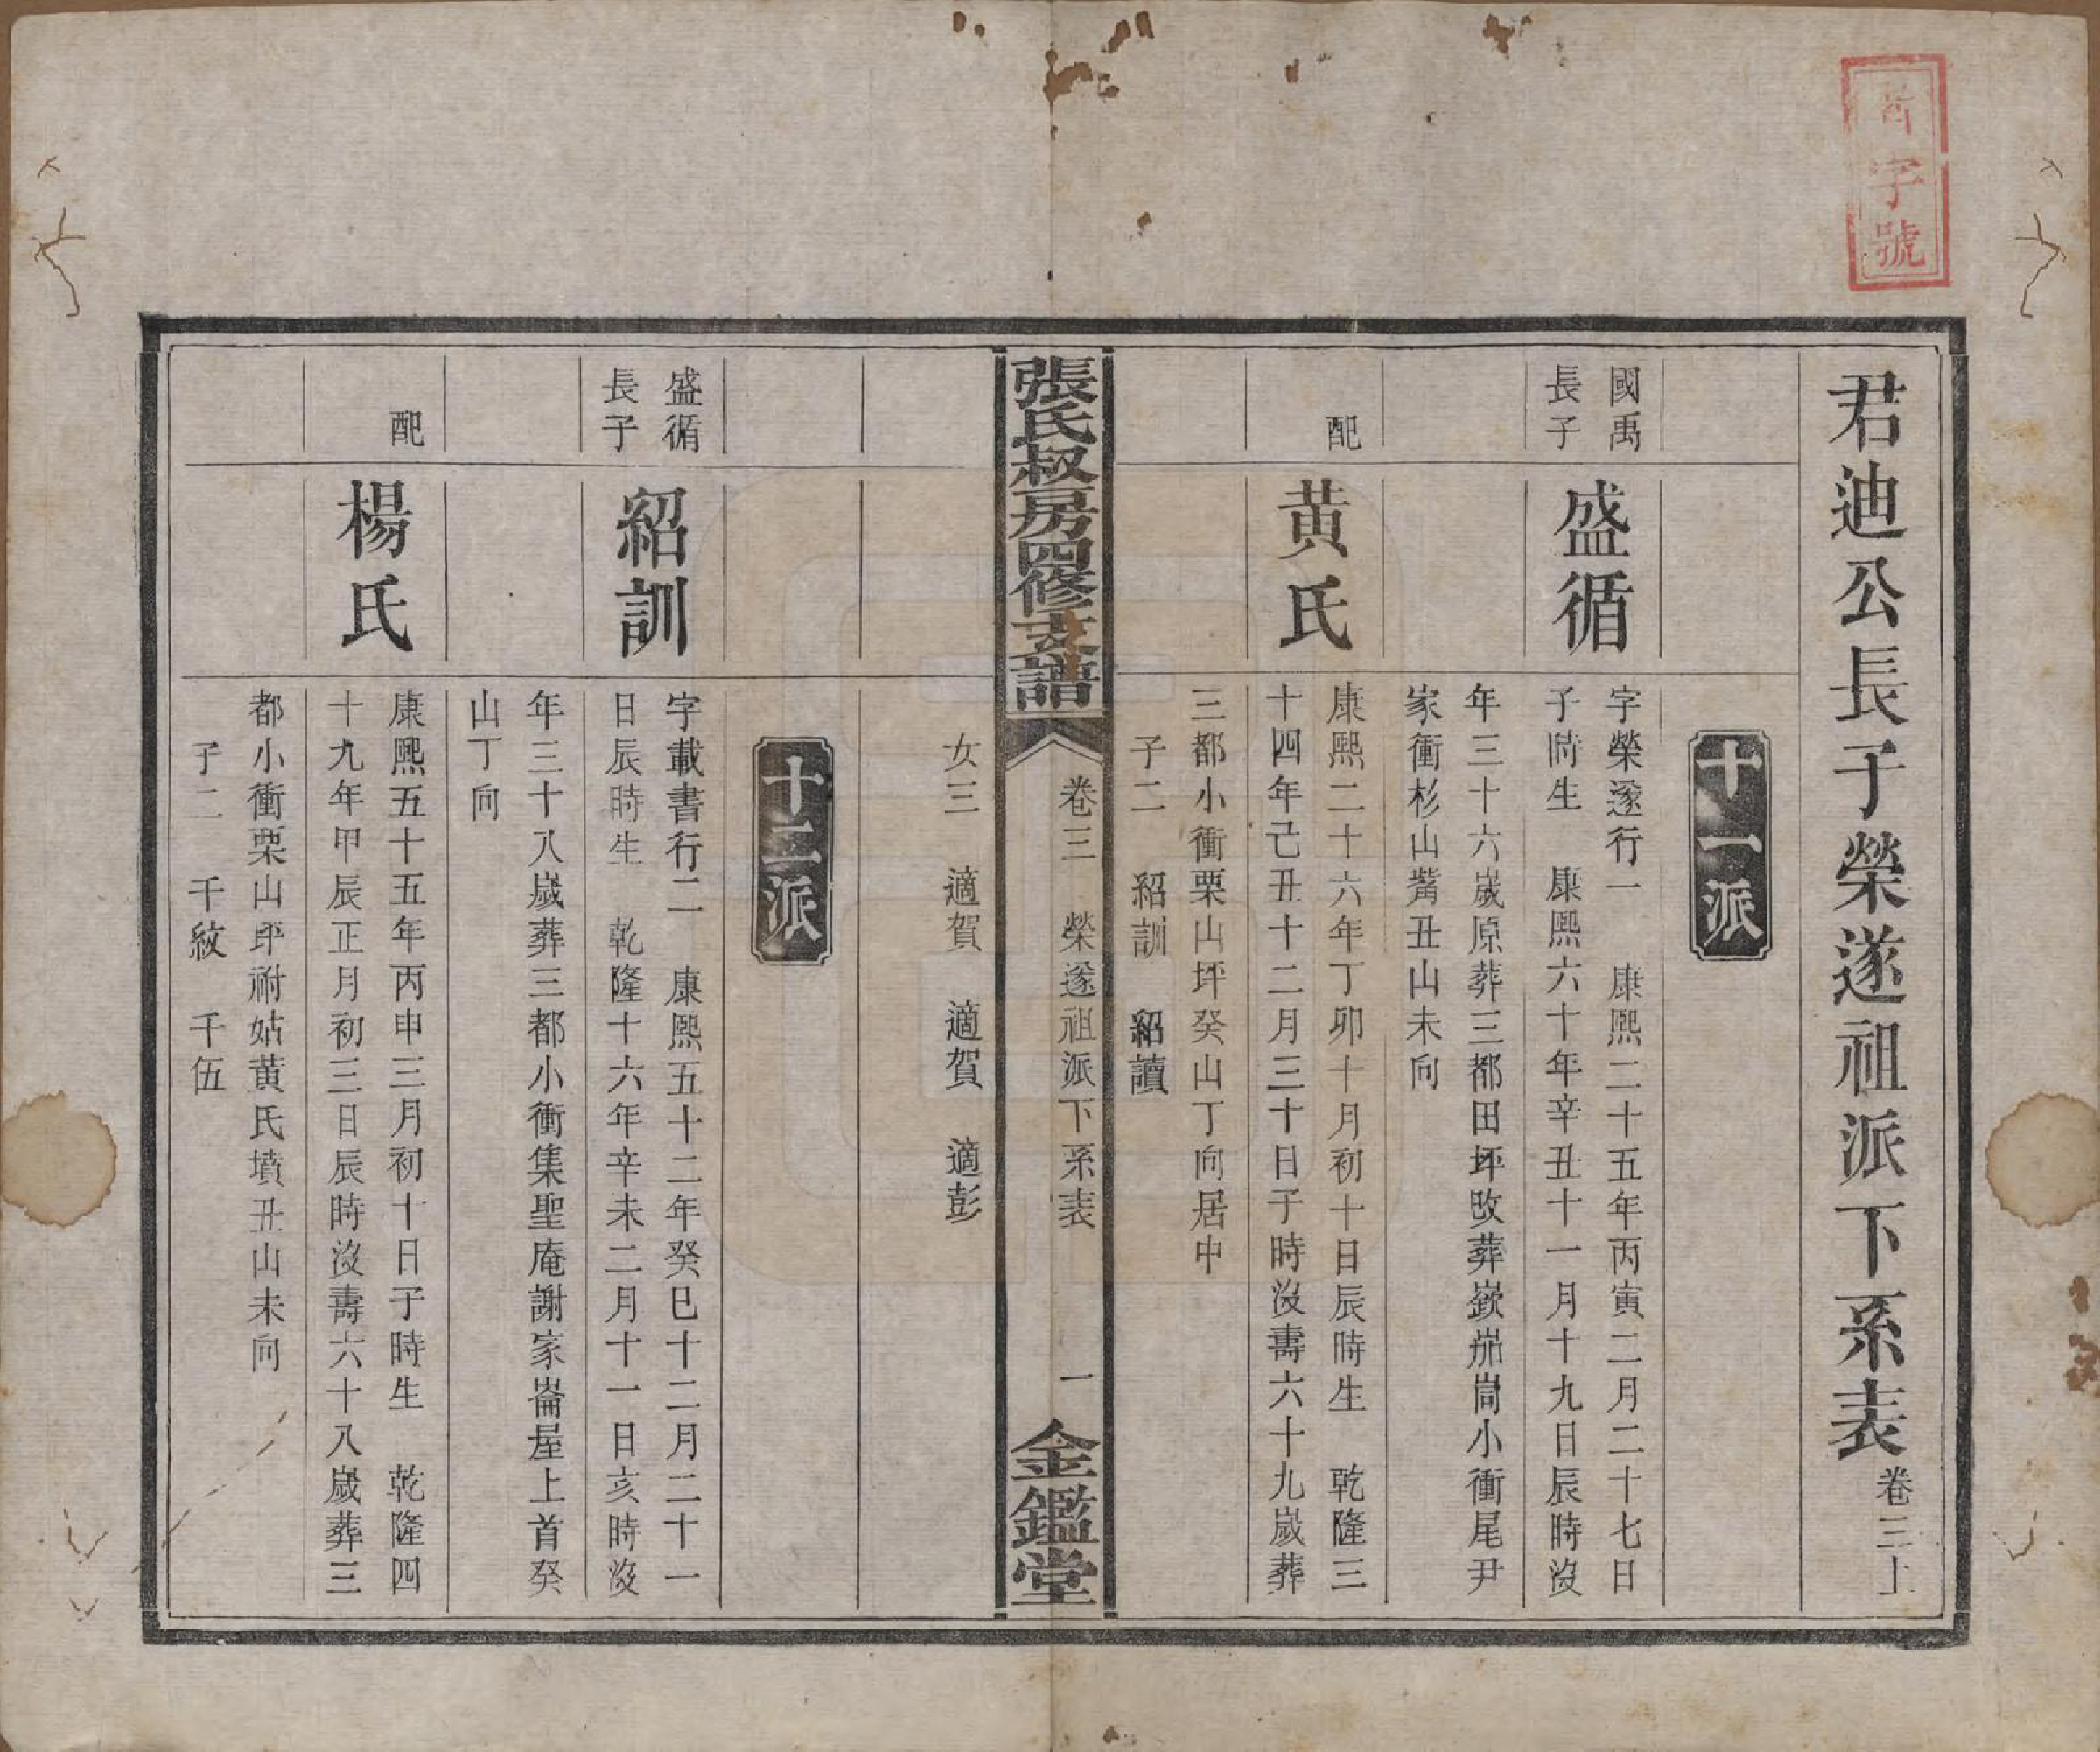 字號
君迪公長子榮遂祖派下系表 卷三上
十一派
國禹
長子
盛循
字榮遂行一 康熙二十五年丙寅二月二十七日
子時生 康熙六十年辛丑十一月十九日辰時沒
年三十六歲原葬三都田坪改葬嶔𡶴崗小衝尾尹
家衝杉山觜丑山未向
配
黄氏
康熙二十六年丁卯十月初十日辰時生 乾隆三
十四年己丑十二月三十日子時沒壽六十九歲葬
三都小衝栗山坪癸山丁向居中
子二 紹訓 紹讀
張氏叔房四修支譜
卷三 榮遂祖派下系表 一
金鑑堂
女三 適賀 適賀 適彭
十二派
盛循
長子
紹訓
字載書行二 康熙五十二年癸巳十二月二十一
日辰時生 乾隆十六年辛未二月十一日亥時沒
年三十八歲葬三都小衝集聖庵謝家崙屋上首癸
山丁向
配
楊氏
康熙五十五年丙申三月初十日子時生 乾隆四
十九年甲辰正月初三日辰時沒壽六十八歲葬三
都小衝栗山坪祔姑黄氏墳丑山未向
子二 千紋 千伍